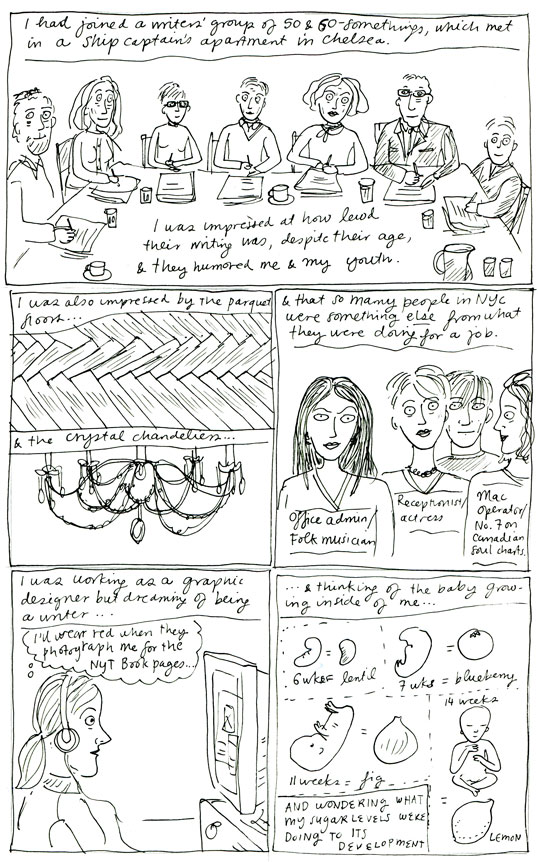 I had joined a writers' group of 50 & 60-somethings, which met
in a ship captain's apartment in Chelsea.
I was impressed at how lewd
their writing was, despite their age,
& they humored me & my youth.
I was also impressed by the parquet
floors...
& the crystal chandeliers...
& that so many people in NYC
were something else from what
they were doing for a job.
Office admin/
Folk musician
Receptionist/
actress
Mac
Operator/
No. 7 on
Canadian
Soul charts.
I was working as a graphic
designer but dreaming of being
a writer....
I'll wear red when they
photograph me for the
NYT Book pages...
...& thinking of the baby grow-
ing inside of me...
6 wks = lentil
7 wks = blueberry
11 weeks = fig
14 weeks
=
LEMON
AND WONDERING WHAT
MY SUGAR LEVELS WERE
DOING TO ITS
DEVELOPMENT